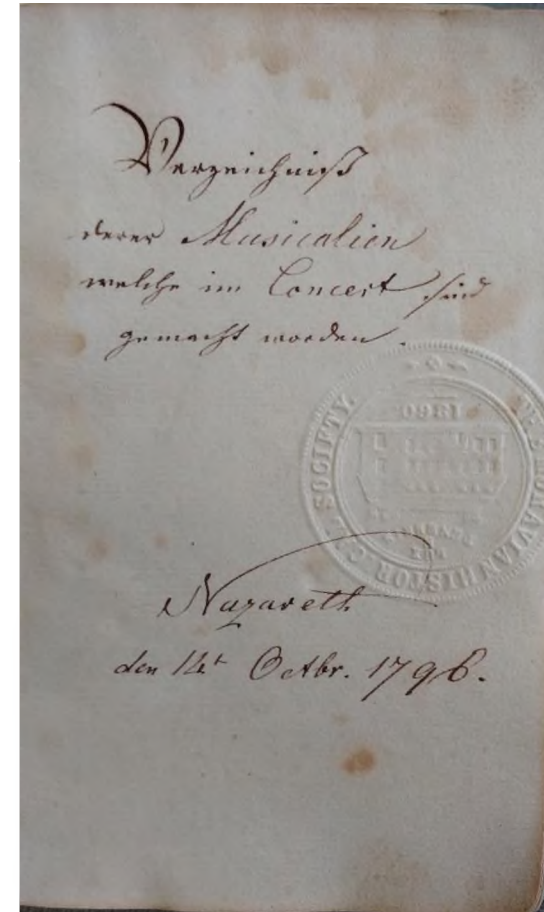 Verzeichniß
derer Musicalien
welche im Concert sind
gemacht worden.
THE MORAVIAN HISTORICAL SOCIETY.
1860
Nazareth
den 14t Octbr. 1796.